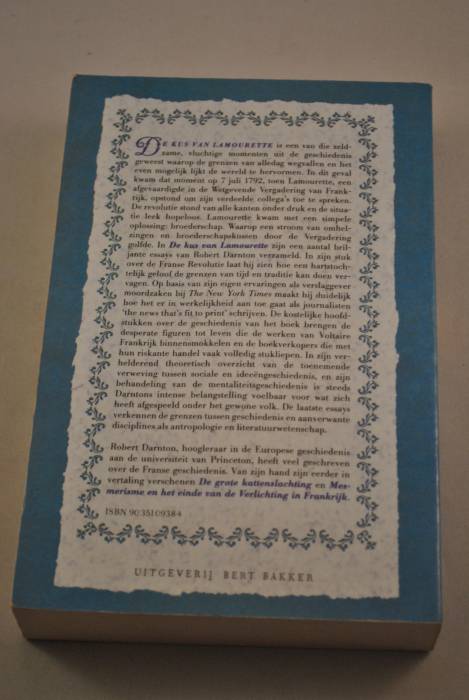 DE KUS VAN LAMOURETTE is een van die zeld-
zame, vluchtige momenten uit de geschiedenis
geweest waarop de grenzen van alledag wegvallen en het
even mogelijk lijkt de wereld te hervormen. In dit geval
kwam dat moment op 7 juli 1792, toen Lamourette, een
afgevaardigde in de Wetgevende Vergadering van Frank-
rijk, opstond om zijn verdeelde collega's toe te spreken.
De revolutie stond van alle kanten onder druk en de situa-
tie leek hopeloos. Lamourette kwam met een simpele
oplossing: broederschap. Waarop een stroom van omhel-
zingen en broederschapskussen door de Vergadering
golfde. In De kus van Lamourette zijn een aantal bril-
jante essays van Robert Darnton verzameld. In zijn stuk
over de Franse Revolutie laat hij zien hoe een hartstoch-
telijk geloof de grenzen van tijd en traditie kan doen ver-
vagen. Op basis van zijn eigen ervaringen als verslaggever
moordzaken bij The New York Times maakt hij duidelijk
hoe het er in werkelijkheid aan toe gaat als journalisten
'the news that's fit to print' schrijven. De kostelijke hoofd-
stukken over de geschiedenis van het boek brengen de
desperate figuren tot leven die de werken van Voltaire
Frankrijk binnensmokkelen en de boekverkopers die met
hun riskante handel vaak volledig stukliepen. In zijn ver-
helderend theoretisch overzicht van de toenemende
verweving tussen sociale en ideeëngeschiedenis, en zijn
behandeling van de mentaliteitsgeschiedenis is steeds
Darntons intense belangstelling voelbaar voor wat zich
heeft afgespeeld onder het gewone volk. De laatste essays
verkennen de grenzen tussen geschiedenis en aanverwante
disciplines als antropologie en literatuurwetenschap.
Robert Darnton, hoogleraar in de Europese geschiedenis
aan de universiteit van Princeton, heeft veel geschreven
over de Franse geschiedenis. Van zijn hand zijn eerder in
vertaling verschenen De grote kattenslachting en Mes-
merisme en het einde van de Verlichting in Frankrijk.
ISBN 90 351 0938 4
UITGEVERIJ BERT BAKKER